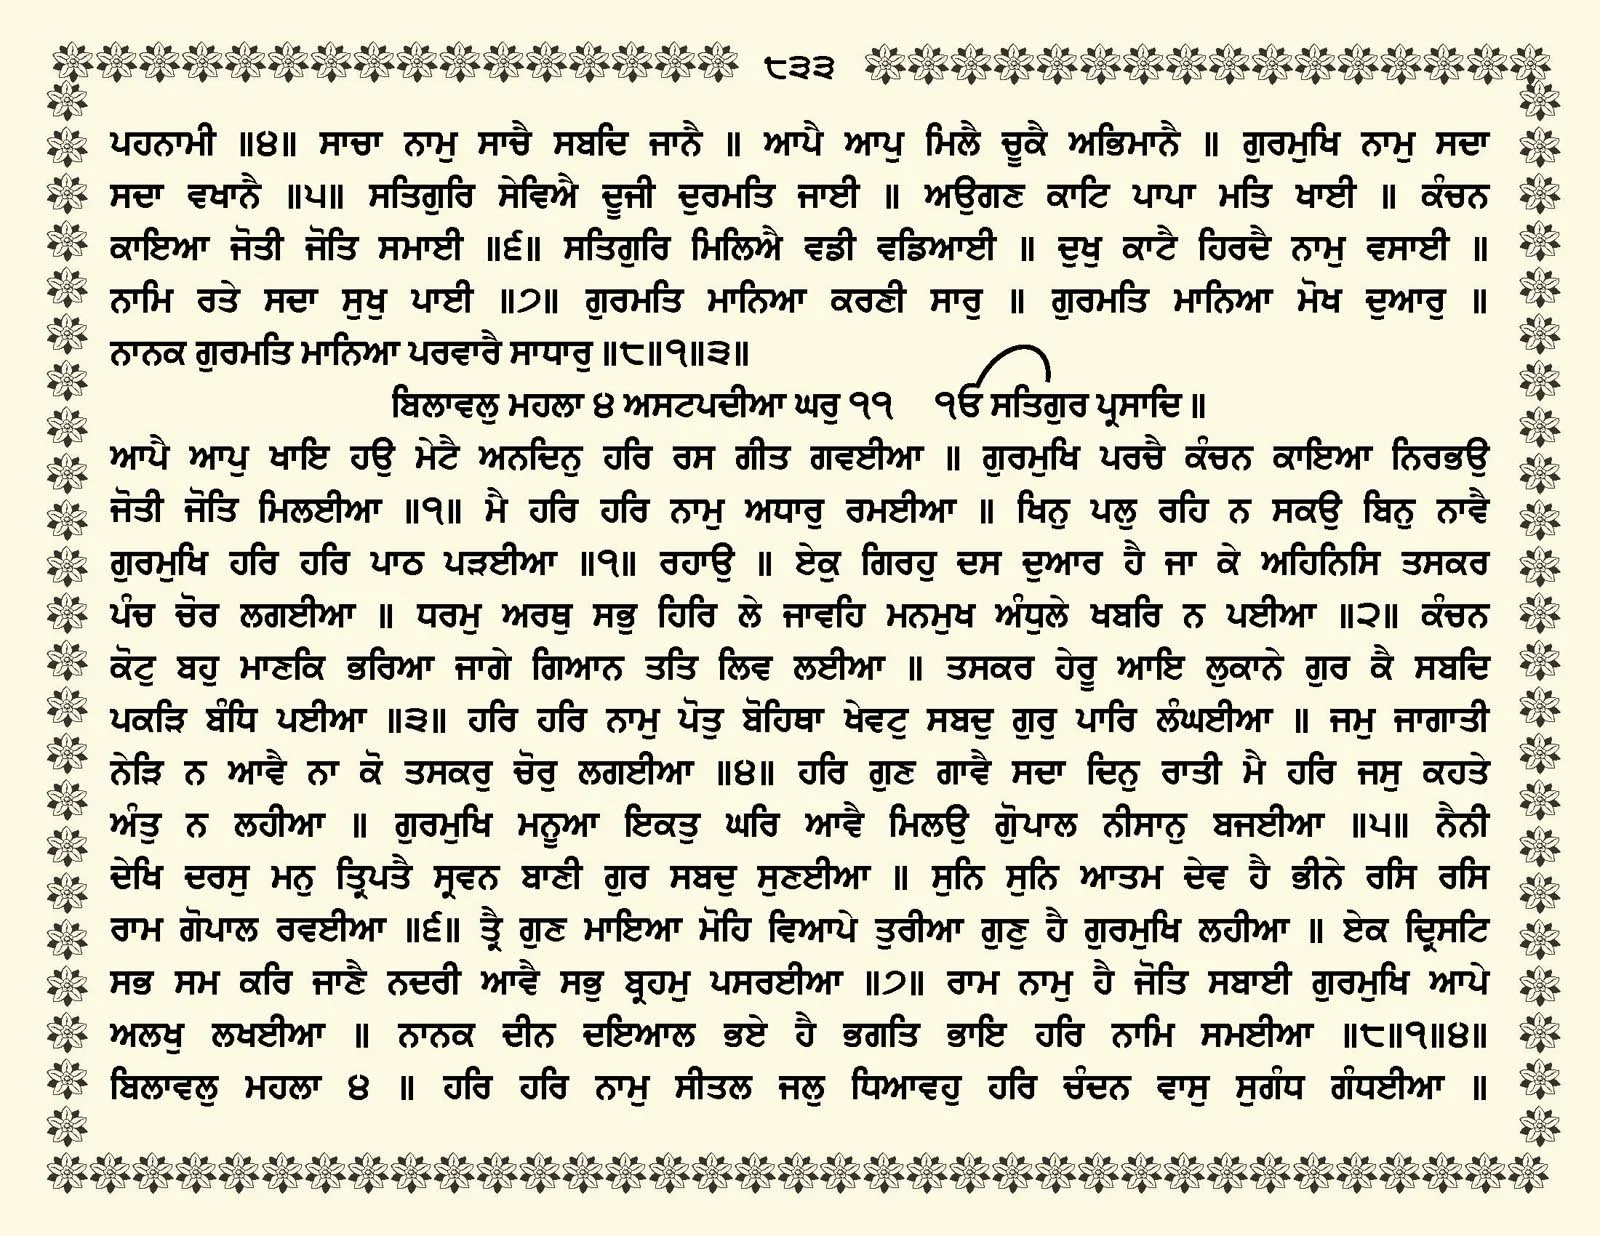 ੮੩੩
ਪਹਨਾਮੀ ॥੪॥ ਸਾਚਾ ਨਾਮੁ ਸਾਚੈ ਸਬਦਿ ਜਾਨੈ ॥ ਆਪੈ ਆਪੁ ਮਿਲੈ ਚੂਕੈ ਅਭਿਮਾਨੈ ॥ ਗੁਰਮੁਖਿ ਨਾਮੁ ਸਦਾ
ਸਦਾ ਵਖਾਨੈ ॥੫॥ ਸਤਿਗੁਰਿ ਸੇਵਿਐ ਦੂਜੀ ਦੁਰਮਤਿ ਜਾਈ ॥ ਅਉਗਣ ਕਾਟਿ ਪਾਪਾ ਮਤਿ ਖਾਈ ॥ ਕੰਚਨ
ਕਾਇਆ ਜੋਤੀ ਜੋਤਿ ਸਮਾਈ ॥੬॥ ਸਤਿਗੁਰਿ ਮਿਲਿਐ ਵਡੀ ਵਡਿਆਈ ॥ ਦੁਖੁ ਕਾਟੈ ਹਿਰਦੈ ਨਾਮੁ ਵਸਾਈ ॥
ਨਾਮਿ ਰਤੇ ਸਦਾ ਸੁਖੁ ਪਾਈ ॥੭॥ ਗੁਰਮਤਿ ਮਾਨਿਆ ਕਰਣੀ ਸਾਰੁ ॥ ਗੁਰਮਤਿ ਮਾਨਿਆ ਮੋਖ ਦੁਆਰੁ ॥
ਨਾਨਕ ਗੁਰਮਤਿ ਮਾਨਿਆ ਪਰਵਾਰੈ ਸਾਧਾਰੁ ॥੮॥੧॥੩॥
ਬਿਲਾਵਲੁ ਮਹਲਾ ੪ ਅਸਟਪਦੀਆ ਘਰੁ ੧੧ ੴ ਸਤਿਗੁਰ ਪ੍ਰਸਾਦਿ ॥
ਆਪੈ ਆਪੁ ਖਾਇ ਹਉ ਮੇਟੈ ਅਨਦਿਨੁ ਹਰਿ ਰਸ ਗੀਤ ਗਵਈਆ ॥ ਗੁਰਮੁਖਿ ਪਰਚੈ ਕੰਚਨ ਕਾਇਆ ਨਿਰਭਉ
ਜੋਤੀ ਜੋਤਿ ਮਿਲਈਆ ॥੧॥ ਮੈ ਹਰਿ ਹਰਿ ਨਾਮੁ ਅਧਾਰੁ ਰਮਈਆ ॥ ਖਿਨੁ ਪਲੁ ਰਹਿ ਨ ਸਕਉ ਬਿਨੁ ਨਾਵੈ
ਗੁਰਮੁਖਿ ਹਰਿ ਹਰਿ ਪਾਠ ਪੜਈਆ ॥੧॥ ਰਹਾਉ ॥ ਏਕੁ ਗਿਰਹੁ ਦਸ ਦੁਆਰ ਹੈ ਜਾ ਕੇ ਅਹਿਨਿਸਿ ਤਸਕਰ
ਪੰਚ ਚੋਰ ਲਗਈਆ ॥ ਧਰਮੁ ਅਰਥੁ ਸਭੁ ਹਿਰਿ ਲੇ ਜਾਵਹਿ ਮਨਮੁਖ ਅੰਧੁਲੇ ਖਬਰਿ ਨ ਪਈਆ ॥੨॥ ਕੰਚਨ
ਕੋਟੁ ਬਹੁ ਮਾਣਕਿ ਭਰਿਆ ਜਾਗੇ ਗਿਆਨ ਤਤਿ ਲਿਵ ਲਈਆ ॥ ਤਸਕਰ ਹੇਰੂ ਆਇ ਲੁਕਾਨੇ ਗੁਰ ਕੈ ਸਬਦਿ
ਪਕੜਿ ਬੰਧਿ ਪਈਆ ॥੩॥ ਹਰਿ ਹਰਿ ਨਾਮੁ ਪੋਤੁ ਬੋਹਿਥਾ ਖੇਵਟੁ ਸਬਦੁ ਗੁਰੁ ਪਾਰਿ ਲੰਘਈਆ ॥ ਜਮੁ ਜਾਗਾਤੀ
ਨੇੜਿ ਨ ਆਵੈ ਨਾ ਕੋ ਤਸਕਰੁ ਚੋਰੁ ਲਗਈਆ ॥੪॥ ਹਰਿ ਗੁਣ ਗਾਵੈ ਸਦਾ ਦਿਨੁ ਰਾਤੀ ਮੈ ਹਰਿ ਜਸੁ ਕਹਤੇ
ਅੰਤੁ ਨ ਲਹੀਆ ॥ ਗੁਰਮੁਖਿ ਮਨੂਆ ਇਕਤੁ ਘਰਿ ਆਵੈ ਮਿਲਉ ਗੋੁਪਾਲ ਨੀਸਾਨੁ ਬਜਈਆ ॥੫॥ ਨੈਨੀ
ਦੇਖਿ ਦਰਸੁ ਮਨੁ ਤ੍ਰਿਪਤੈ ਸ੍ਰਵਨ ਬਾਣੀ ਗੁਰ ਸਬਦੁ ਸੁਣਈਆ ॥ ਸੁਨਿ ਸੁਨਿ ਆਤਮ ਦੇਵ ਹੈ ਭੀਨੇ ਰਸਿ ਰਸਿ
ਰਾਮ ਗੋਪਾਲ ਰਵਈਆ ॥੬॥ ਤ੍ਰੈ ਗੁਣ ਮਾਇਆ ਮੋਹਿ ਵਿਆਪੇ ਤੁਰੀਆ ਗੁਣੁ ਹੈ ਗੁਰਮੁਖਿ ਲਹੀਆ ॥ ਏਕ ਦ੍ਰਿਸਟਿ
ਸਭ ਸਮ ਕਰਿ ਜਾਣੈ ਨਦਰੀ ਆਵੈ ਸਭੁ ਬ੍ਰਹਮੁ ਪਸਰਈਆ ॥੭॥ ਰਾਮ ਨਾਮੁ ਹੈ ਜੋਤਿ ਸਬਾਈ ਗੁਰਮੁਖਿ ਆਪੇ
ਅਲਖੁ ਲਖਈਆ ॥ ਨਾਨਕ ਦੀਨ ਦਇਆਲ ਭਏ ਹੈ ਭਗਤਿ ਭਾਇ ਹਰਿ ਨਾਮਿ ਸਮਈਆ ॥੮॥੧॥੪॥
ਬਿਲਾਵਲੁ ਮਹਲਾ ੪ ॥ ਹਰਿ ਹਰਿ ਨਾਮੁ ਸੀਤਲ ਜਲੁ ਧਿਆਵਹੁ ਹਰਿ ਚੰਦਨ ਵਾਸੁ ਸੁਗੰਧ ਗੰਧਈਆ ॥